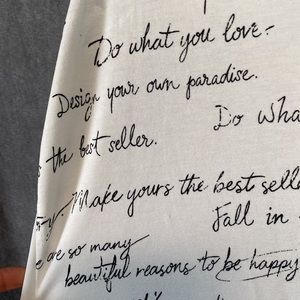 Do what you love.
Design your own paradise.
Do wha
the best seller.
Make yours the best selle
Fall in
e are so many
beautiful reasons to be happy